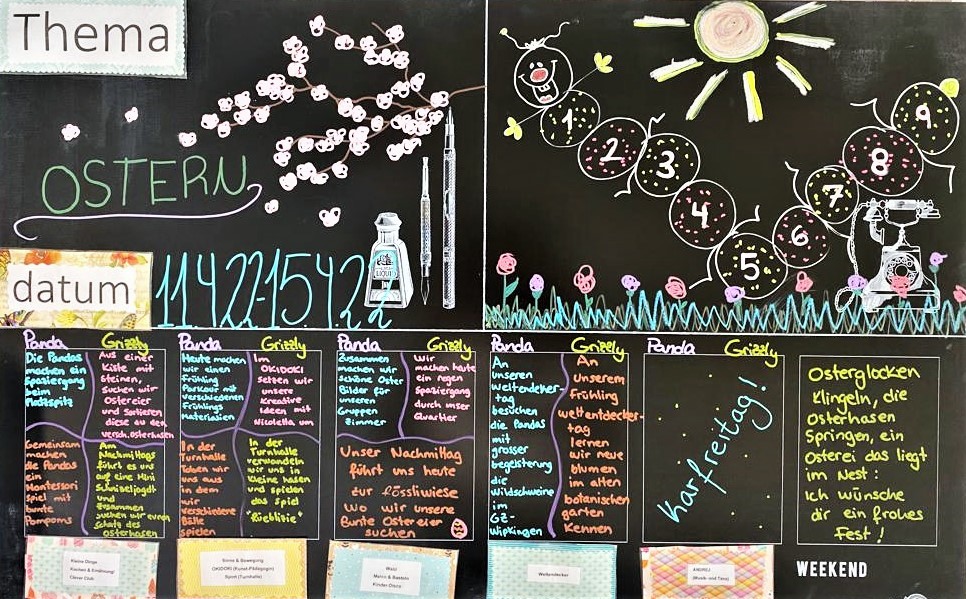 Thema
OSTERN
datum
11422-15.422
LIQUI
1
2
3
4
5
6
7
8
9
Panda Grizzly
Die Pandas
machen ein
Spaziergang
beim
Platzspitz
Aus einer
Kiste mit
Steinen,
suchen wir
Ostereier
und Sortieren
diese au den
versch.osterhasen
Gemeinsam
machen
die Pandas
ein
Montessori
spiel mit
bunte
Pompoms
Am
Nachmittags
führt es uns
auf eine Mini
Schnitzeljagdt
und
zusammen
suchen wir einen
schatz des
Osterhasen
Panda Grizzly
Heute machen
wir einen
Frühling
Parkour mit
verschiedenen
Frühlings
Materialien
Im
OKIDOKI
setzen wir
unsere
Kreative
Ideen mit
Nicoletta um
In der
Turnhalle
toben wir
uns aus
in dem
wir
verschiedene
Bälle
spielen
In der
Turnhalle
verwandeln
wir uns in
kleine hasen
und spielen
das spiel
"Rüeblizie"
Panda Grizzly
Zusammen
machen wir
schöne Oster
Bilder für
unseren
Gruppen
Zimmer
Wir
machen heute
ein regen
Spaziergang
durch unser
Quartier
Unser Nachmittag
führt uns heute
zur fössliwiese
Wo wir unsere
Bunte Ostereier
suchen
Panda Grizzly
An
unseren
weltendecker-
tag
besuchen
die Pandas
mit
grosser
begeisterung
die
Wildschweine
im
GZ-
Wipkingen
An
unserem
Frühling
weltentdecker-
tag
lernen
wir neue
blumen
im alten
botanischen
garten
Kennen
Panda Grizzly
Karfreitag!
Osterglocken
Klingeln, die
Osterhasen
Springen, ein
Osterei das liegt
im Nest:
Ich wünsche
dir ein frohes
Fest!
Kleine Dinge
Kochen & Ernährung/
Clever Club
Sinne & Bewegung
OKIDOKI (Kunst-Pädagogin)
Sport (Turnhalle)
Wald
Malen & Basteln
Kinder-Disco
Weltendecker
ANDREJ
(Musik- und Tanz)
WEEKEND